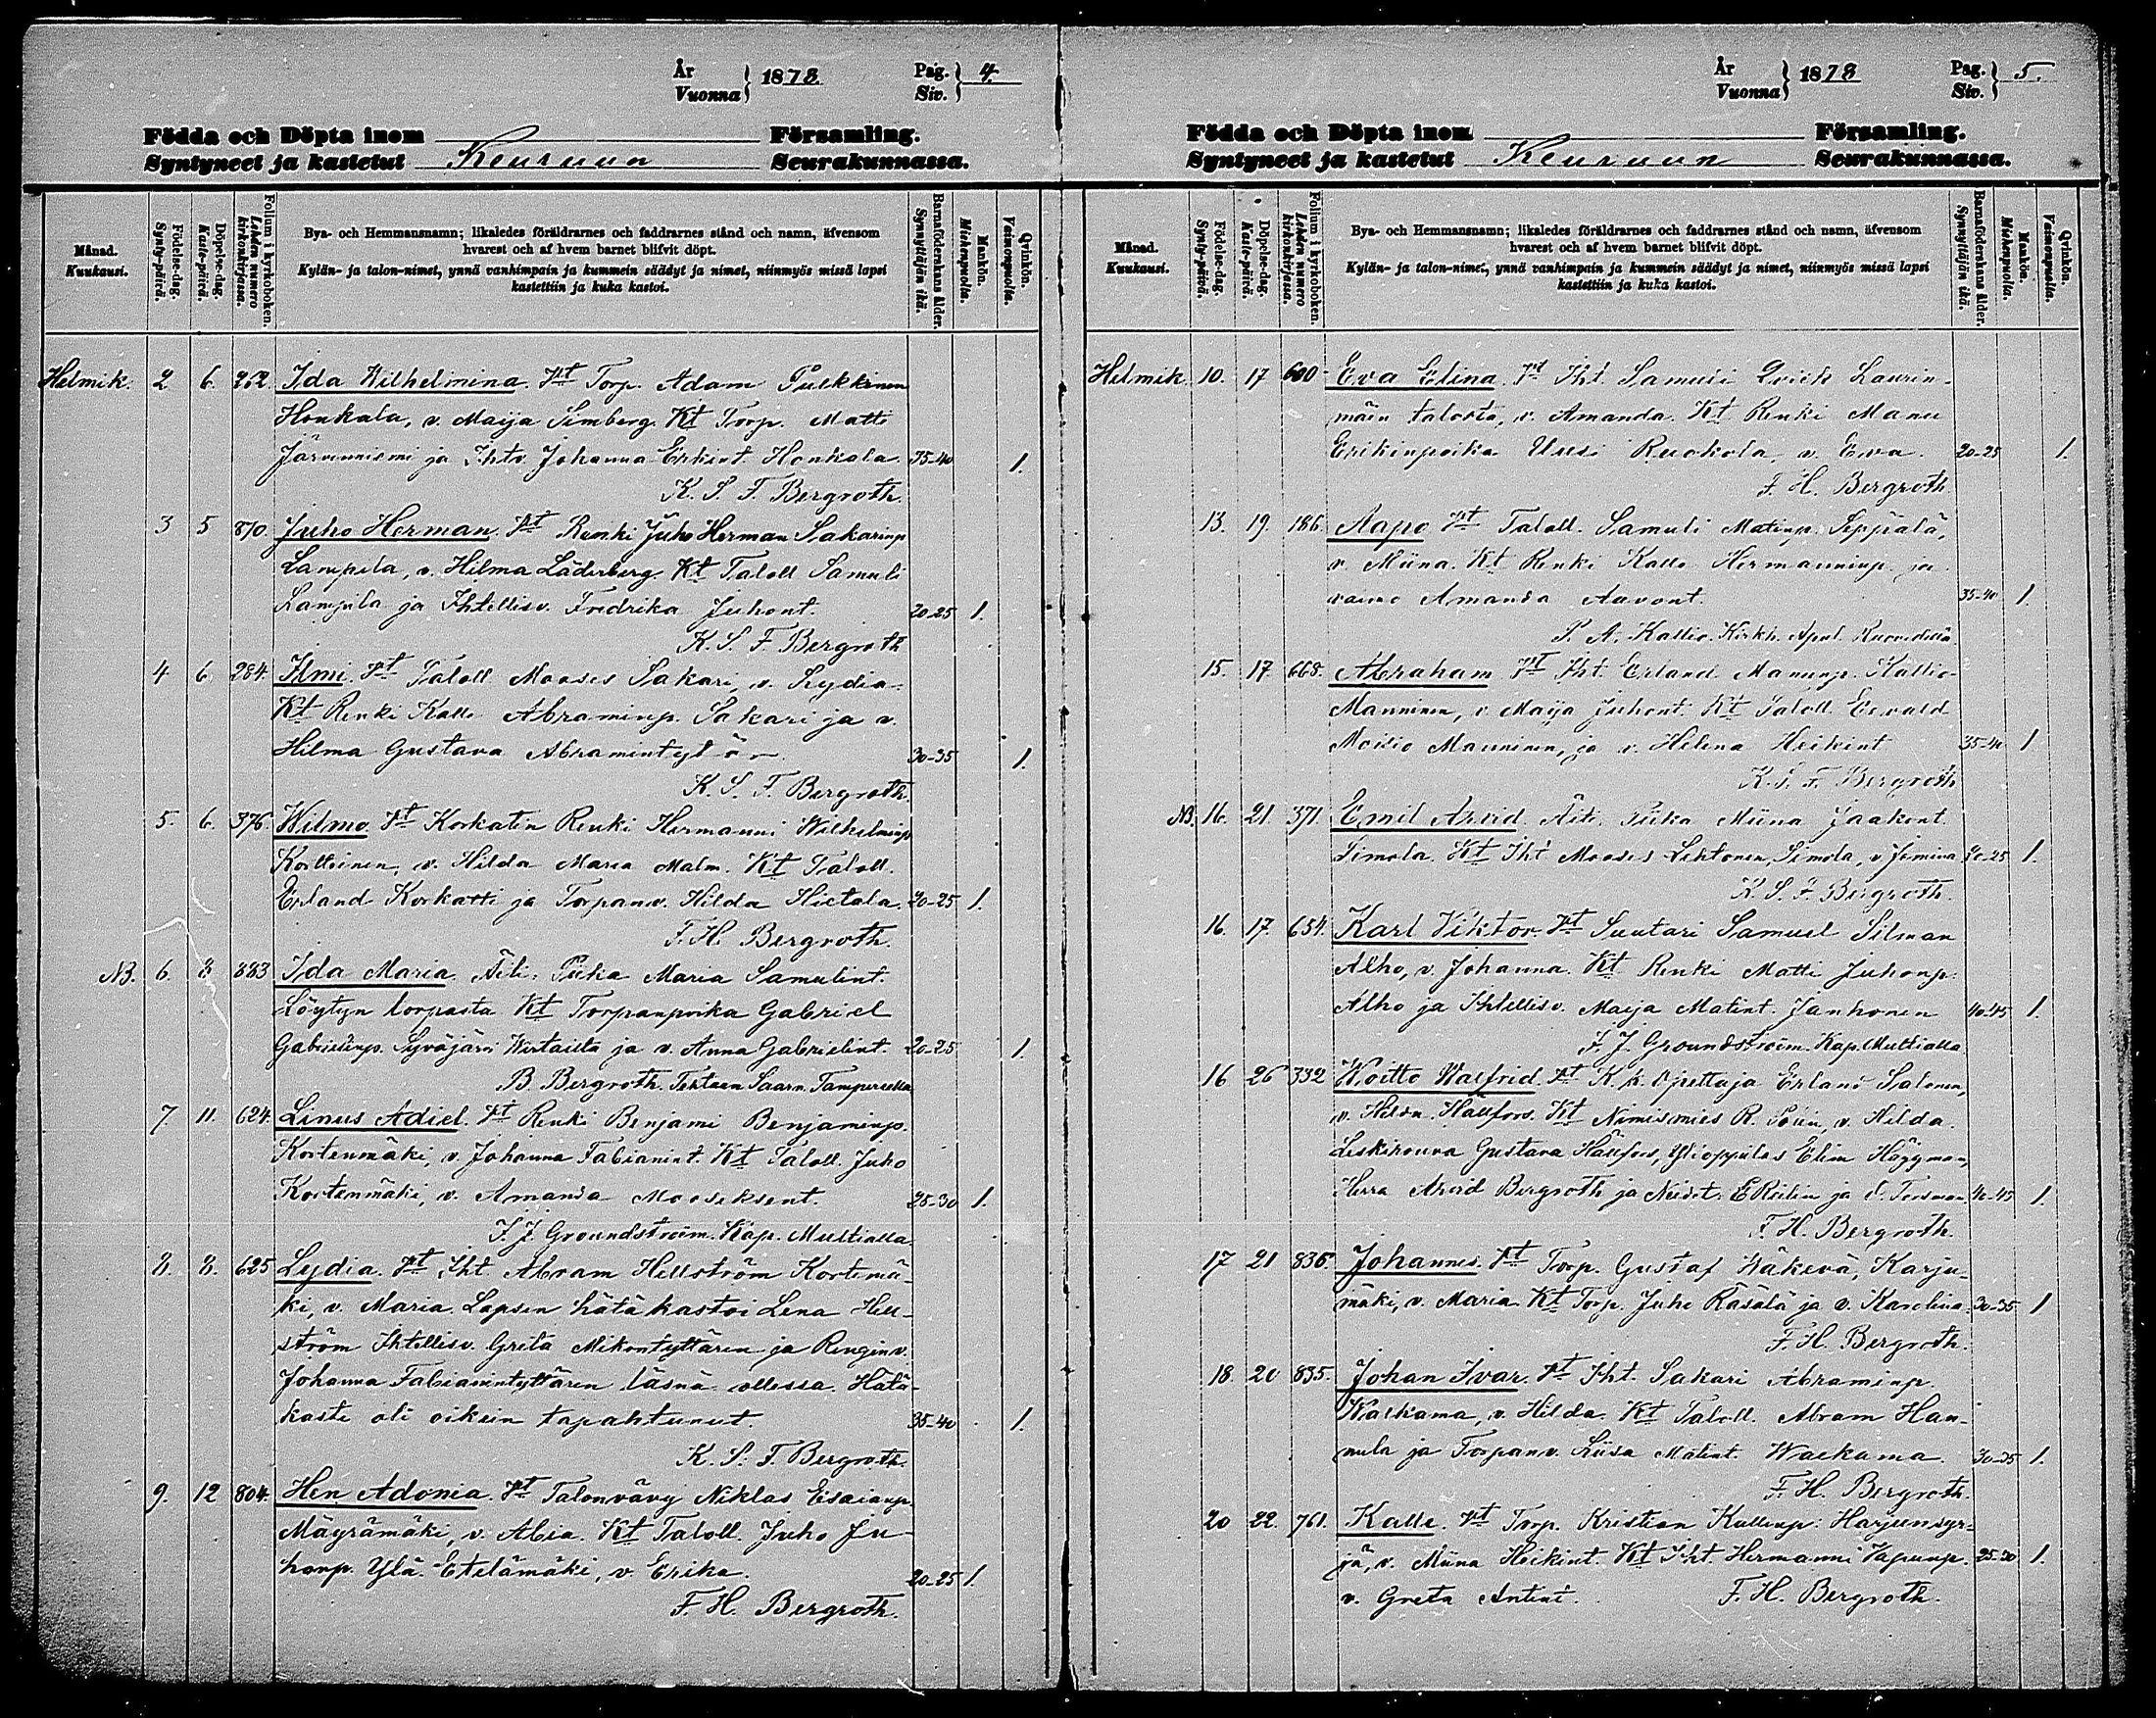 År
Vuonna
1878
Pag.
Siv.
4.
Födda och Döpta inom Församling.
Syntyneet ja kastetut Keuruun Seurakunnassa.
Månad.
Kuukausi.
Födelse-dag.
Synty-päivä.
Döpelse-dag.
Kaste-päivä.
Folium i kyrkoboken.
Lehden numero kirkonkirjassa.
Bya- och Hemmansnamn; likaledes föräldrarnes och faddrarnes stånd och namn, äfvensom
hvarest och af hvem barnet blifvit döpt.
Kylän- ja talon-nimet, ynnä vanhimpain ja kummein säädyt ja nimet, niinmyös missä lapsi
kastettiin ja kuka kastoi.
Barnaföderskans ålder.
Synnyttäjän ikä.
Mankön.
Miehenpuolta.
Qvinkön.
Vaimonpuolta.
Helmik. 2 6. 262. Ida Wilhelmina. Vt Torp. Adam Pulkkinen
Honkala, v. Maija Simberg. Kt Torp. Matti
Järvenniemi ja Ihtv. Johanna Erkint. Honkala. 35-40 1.
K. S. F. Bergroth.
3 5 870. Juho Herman. Vt Renki Juho Herman Sakarinp
Lampila, v. Hilma Läderberg. Kt Taloll Samuli
Lampila ja Ihtellisv. Fredrika Juhont. 20-25 1.
K. S. F Bergroth
4 6. 284. Ilmi. Vt Taloll Mooses Sakari, v. Lydia.
Kt Renki Kalle Abraminp. Sakari ja v.
Hilma Gustava Abramintytär 30-35 1.
K. S. F. Bergroth.
5. 6. 376. Wilmo. Vt Korkatin Renki Hermanni Wilhelminp
Koittinen, v. Hilda Maria Malm. Kt Taloll.
Erland Korkatti ja Torpanv. Hilda Hietala. 20-25 1.
F. H. Bergroth.
NB. 6. 8 883 Ida Maria. Äiti: Piika Maria Samulint.
Löytyn torpasta Kt Torpanpoika Gabriel
Gabrielinp. Syväjärvi Wirtailta ja v. Anna Gabrielint. 20-25 1.
B. Bergroth. Tehtaan Saarn. Tampereella
7. 11. 624. Linus Adiel. Vt Renki Benjami Benjaminp.
Kortenmäki, v. Johanna Fabianint. Kt Taloll. Juho
Kortenmäki, v. Amanda Mooseksent. 25-30 1.
F. J. Groundstroem. Kap. Multialla.
8. 8. 625 Lydia. Vt Iht Abram Hellström Kortemä-
ki, v. Maria. Lapsen hätäkastoi Lena Hell-
ström Ihtellisv. Greta Mikontyttären ja Renginv.
Johanna Fabianintyttären läsnä ollessa. Hätä-
kaste oli oikein tapahtunut 35-40 1.
K. S. F. Bergroth.
9. 12 804. Hen Adonia. Vt Talonvävy Niklas Esaianp
Mäyrämäki, v. Abia. Kt Taloll. Juho Ju-
honp. Ylä-Etelämäki, v. Erika. 20-25 1.
F. H. Bergroth.
År
Vuonna
1878
Pag.
Siv.
5.
Födda och Döpta inom Församling.
Syntyneet ja kastetut Keuruun Seurakunnassa.
Månad.
Kuukausi.
Födelse-dag.
Synty-päivä.
Döpelse-dag.
Kaste-päivä.
Folium i kyrkoboken.
Lehden numero kirkonkirjassa.
Bya- och Hemmansnamn; likaledes föräldrarnes och faddrarnes stånd och namn, äfvensom
hvarest och af hvem barnet blifvit döpt.
Kylän- ja talon-nimet, ynnä vanhimpain ja kummein säädyt ja nimet, niinmyös missä lapsi
kastettiin ja kuka kastoi.
Barnaföderskans ålder.
Synnyttäjän ikä.
Mankön.
Miehenpuolta.
Qvinkön.
Vaimonpuolta.
Helmik. 10. 17 600 Eva Elina. Vt Iht. Samuli Qvick Laurin-
mäen talosta, v. Amanda. Kt Renki Manu
Erikinpoika Uusi Ruokola, v. Eva. 20-25 1.
F. H. Bergroth.
13. 19. 186. Aapo Vt Taloll. Samuli Matinp. Seppälä,
v. Miina. Kt Renki Kalle Hermanninp. ja
vaimo Amanda Aavont. 35-40 1.
P. A. Kallio. Kirkh. Apul. Ruovedellä
15. 17 668. Abraham Vt Iht. Erland Manunp. Kallio-
Manninen, v. Maija Juhont. Kt Taloll. Ewald
Moisio Manninen, ja v. Helena Heikint 35-40 1
K. S. F. Bergroth
NB. 16. 21 371. Emil Arvid. Äiti: Piika Miina Jaakont.
Simola. Kt Iht Mooses Lehtonen, Simola, v Jemina 20-25 1.
K. S. F. Bergroth.
16. 17. 654. Karl Viktor. Vt Suutari Samuel Silman
Alho, v. Johanna. Kt Renki Matti Juhonp:
Alho ja Ihtellisv. Maija Matint. Janhonen 40-45 1.
F. J. Groundstroem. Kap. Multialla
16 26 332 Woitto Walfrid. Vt K. k. Opettaja Erland Salonen,
v. Hilda Hällfors. Kt Nimismies R. , v. Hilda.
Leskirouva Gustava Hällfors, Ylioppilas Elim Häggman,
Herra Arvid Bergroth ja Neidet: E ja 40-45 1.
F. H. Bergroth.
17 21 836. Johannes. Vt Torp. Gustaf Wäkevä, Karju-
mäki, v. Maria. Kt Torp. Juho Räsälä ja v. Karolina. 30-35 1
F. H. Bergroth.
18. 20 835. Johan Ivar. Vt Iht. Sakari Abraminp.
Walkama, v. Hilda. Kt Taloll. Abram Han-
nula ja Torpanv. Liisa Matint. Walkama. 30-35 1.
F. H. Bergroth.
20 22. 761. Kalle. Vt Torp. Kristian Kallenp: Harjunsyr-
jä, v. Miina Heikint. Kt Iht. Hermanni Vapunp. 25-30 1.
v. Greta Antint. F. H. Bergroth.